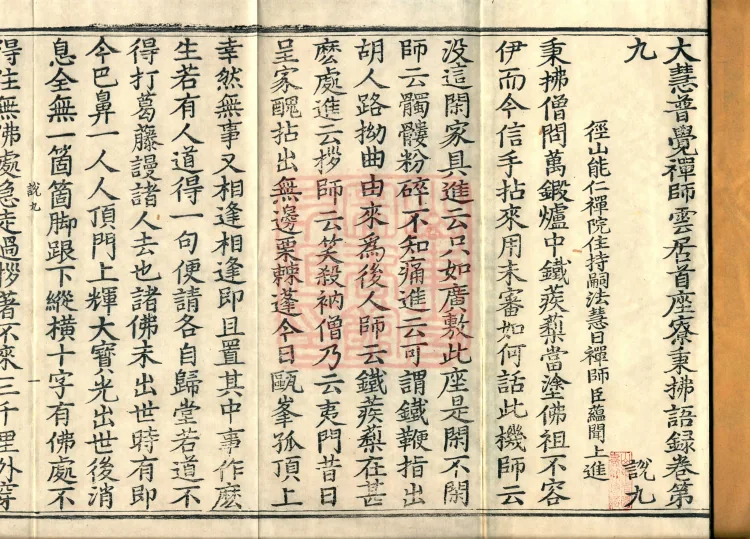 大慧普覺禪師雲居首座寮秉拂語錄卷第
九
說九
徑山能仁禪院住持嗣法慧日禪師臣蘊聞上進
秉拂僧問萬鍛爐中鐵蒺䔧當塗佛祖不容
伊而今信手拈來用未審如何話此機師云
沒這閑家具進云只如廣敷此座是閑不閑
師云髑髏粉碎不知痛進云可謂鐵鞭指出
胡人路拗曲由來為後人師云鐵蒺䔧在甚
麽處進云拶師云笑殺衲僧乃云夷門昔日
呈家醜拈出無邊栗棘蓬今日甌峯孤頂上
幸然無事又相逢相逢即且置其中事作麽
生若有人道得一句便請各自歸堂若道不
得打葛藤謾諸人去也諸佛未出世時有即
今巴鼻一人人頂門上輝大寶光出世後消
息全無一箇箇脚跟下縱橫十字有佛處不
說九
一
得住無佛處急走過拶著不來三千里外穿